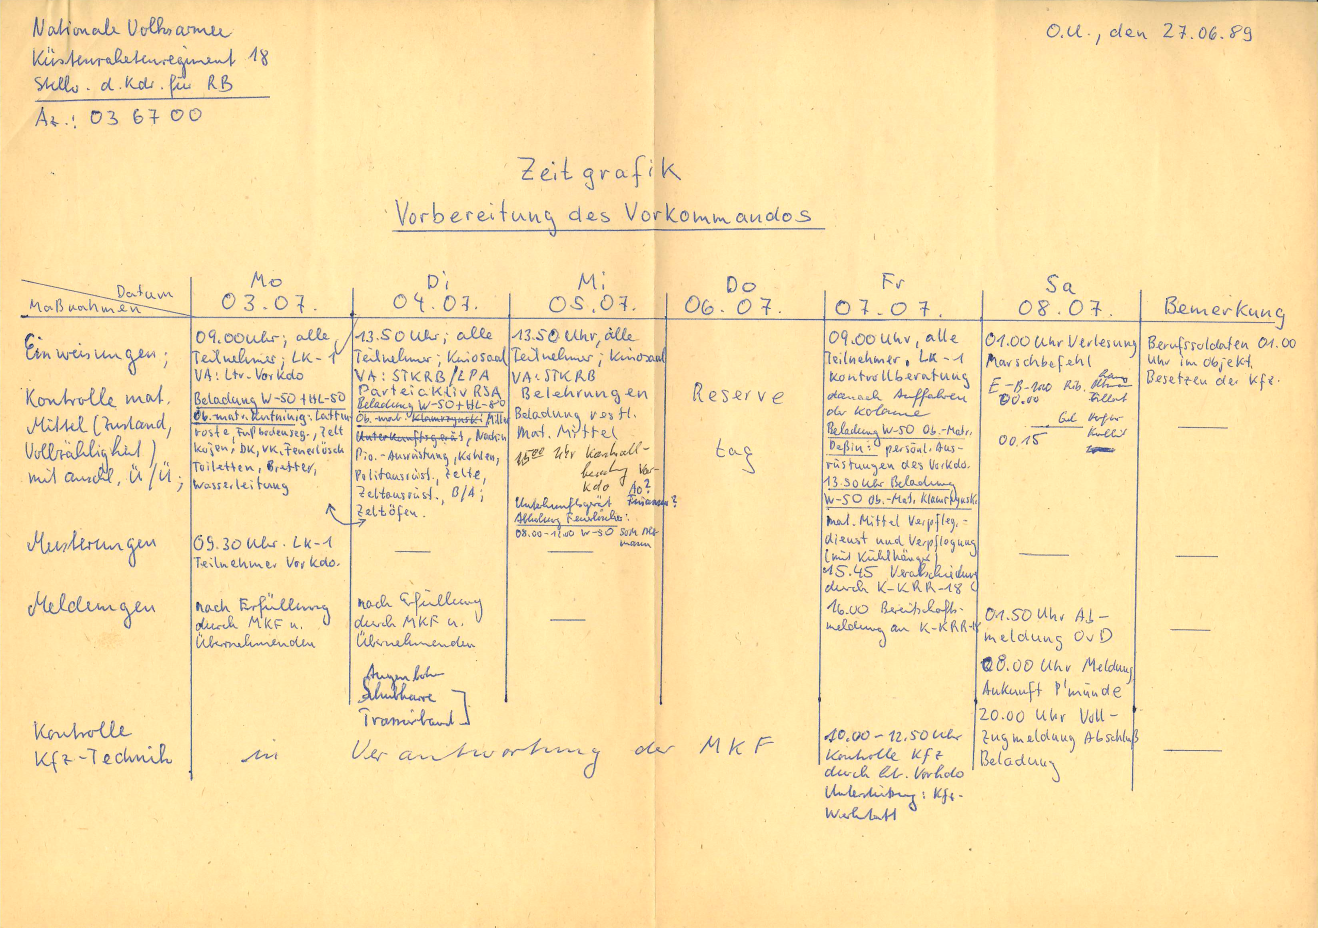 Nationale Volksarmee
Küstenraketenregiment 18
Stellv. d. Kdr. für RB
Az.: 03 67 00
O.U., den 27.06.89
Zeitgrafik
Vorbereitung des Vorkommandos
Datum
Maßnahmen
Mo
03.07.
Di
04.07.
Mi
05.07.
Do
06.07.
Fr
07.07.
Sa
08.07.
Bemerkung
Einweisungen;
Kontrolle mat.
Mittel (Zustand,
Vollzähligkeit)
mit anschl. Ü/Ü;
09.00 Uhr; alle
Teilnehmer; LK-1
VA: Ltr. Vorkdo
Beladung W-50+HL-50
Ob. mat.
roste, Fußbodenseg., Zelt
kojen, DK, VK, Feuerlösch
Toiletten, Bretter,
Wasserleitung
13.50 Uhr; alle
Teilnehmer; Kinosaal
VA: STKRB/LPA
Parteiaktiv RSA
Beladung W-50+HL-80
Ob. mat. Klamrzynski
Unterkunftsgerät,
Pio.-Ausrüstung, Kohlen,
Politausrüst., Zelte,
Zeltausrüst., B/A;
Zeltöfen.
13.50 Uhr, alle
Teilnehmer; Kinosaal
VA: STKRB
Belehrungen
Beladung restl.
Mat. Mittel
15.00 Uhr
Vor-
kdo
Unterkunftsgerät
Abholung Feuerlöscher:
08.00-12.00 W-50
Reserve
tag
09.00 Uhr, alle
Teilnehmer, LK-1
Kontrollberatung
danach Auffahren
der Kolonne
Beladung W-50 Ob.-Matr.
Deßin: persönl. Aus-
rüstungen des Vorkdo.
13.50 Uhr Beladung
W-50 Ob.-Mat. Klamrzynski
mat. Mittel Verpfleg.-
dienst und Verpflegung
(mit Kühlhänger)
15.45 Verabschiedung
durch K-KRR-18
01.00 Uhr Verlesung
Marschbefehl
E-B-1200 Rib.
00.00
00.15
Berufssoldaten 01.00
Uhr im Objekt.
Besetzen der Kfz.
Musterungen
09.30 Uhr. LK-1
Teilnehmer Vorkdo.
Meldungen
nach Erfüllung
durch MKF u.
Übernehmenden
nach Erfüllung
durch MKF u.
Übernehmenden
Schubkarre
Trassierband
16.00 Bereitschafts-
meldung an K-KRR-18
01.50 Uhr Ab-
meldung OvD
08.00 Uhr Meldung
Ankunft P'münde
20.00 Uhr Voll-
zugmeldung Abschluß
Beladung
Kontrolle
Kfz-Technik
in Verantwortung der MKF
10.00-12.50 Uhr
Kontrolle Kfz
durch Ltr. Vorkdo
Unterstützung: Kfz-
Werkstatt